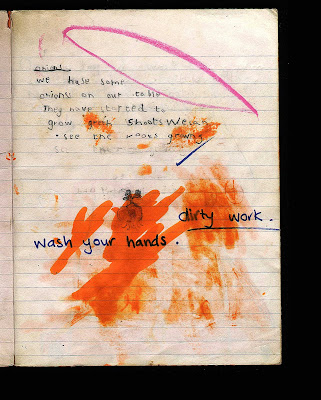 onions
We have some
onions on our table
They have started to
grow shoots We can
see the roots growing
dirty work.
wash your hands.